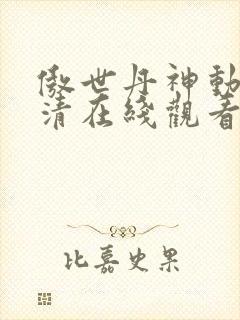 傲世丹神動
清在綫觀看
比嘉史果